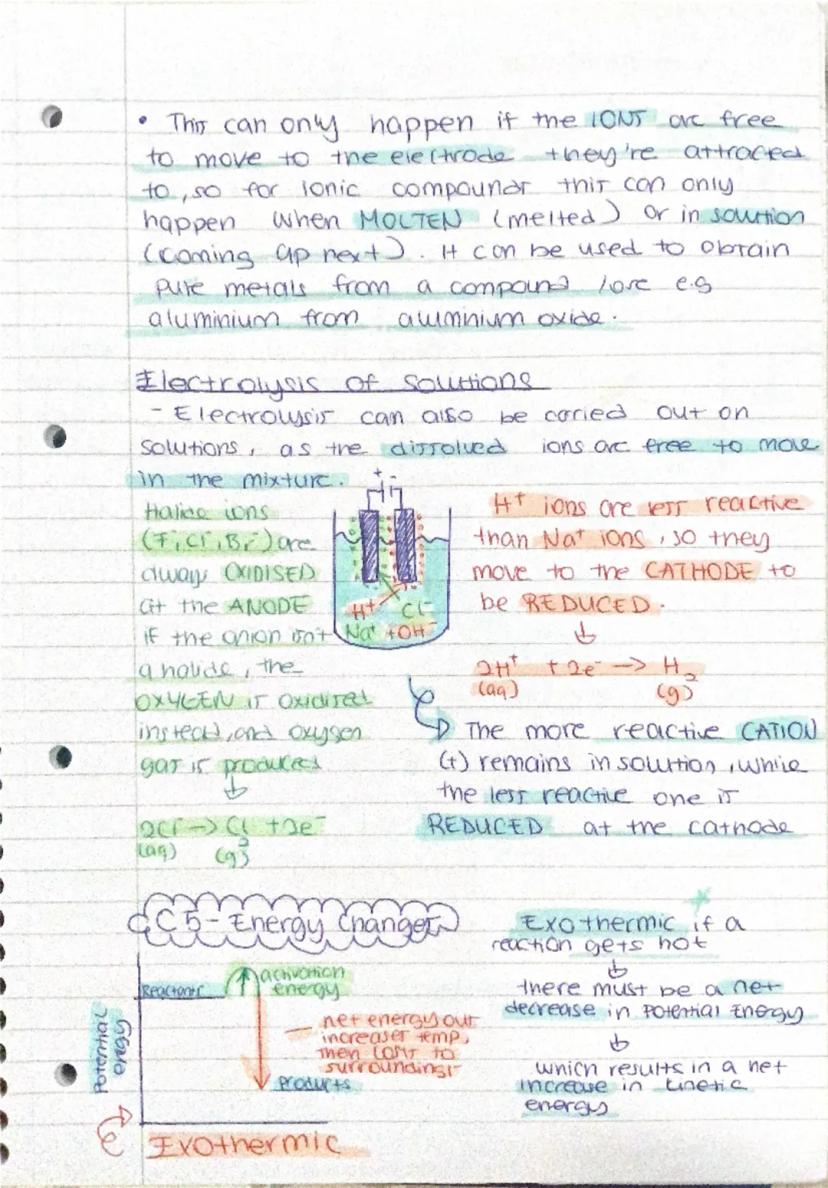 • This can only happen if the IONS are free
to move to the electrode they're attracted
to, so for ionic compounds this can only
happen when MOLTEN (melted) or in solution
(coming up next). It can be used to obtain
pure metals from a compound / ore e.g
aluminium from aluminium oxide.
Electrolysis of solutions
- Electrolysis can also be carried out on
solutions, as the dissolved ions are free to move
in the mixture.
Halide ions
(F⁻, Cl⁻, Br⁻) are
always OXIDISED
at the ANODE
if the anion isn't
a halide, the
OXYGEN is oxidised
instead, and oxygen
gas is produced
↓
2Cl⁻ → Cl₂ + 2e⁻
(aq) (g)
+ -
H⁺ Cl⁻
Na⁺ + OH⁻
H⁺ ions are less reactive
than Na⁺ ions, so they
move to the CATHODE to
be REDUCED.
↓
2H⁺ + 2e⁻ → H₂
(aq) (g)
The more reactive CATION
(+) remains in solution, while
the less reactive one is
REDUCED at the cathode
C5 - Energy Changes
Reactants
activation
energy
net energy out
increases temp,
then LOST to
surroundings
products
Potential
energy
Exothermic
Exothermic if a
reaction gets hot
↓
there must be a net
decrease in Potential Energy
↓
which results in a net
increase in kinetic
energy